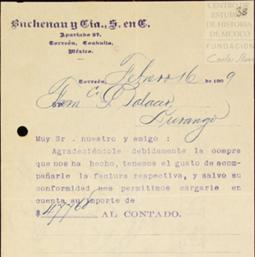 Buchenau y Cia., S. en C.
Apartado 37.
Torreón, Coahuila,
México.
CENTRO DE
ESTUDIOS
DE HISTORIA
DE MEXICO
FUNDACIÓN
38
Torreón, Febrero 16 de 1909
Palacio
Durango
Muy Sr. nuestro y amigo:
Agradeciéndole debidamente la compra
que nos ha hecho, tenemos el gusto de acom-
pañarle la factura respectiva, y salvo su
conformidad nos permitimos cargarle en
cuenta su importe de
$ AL CONTADO.